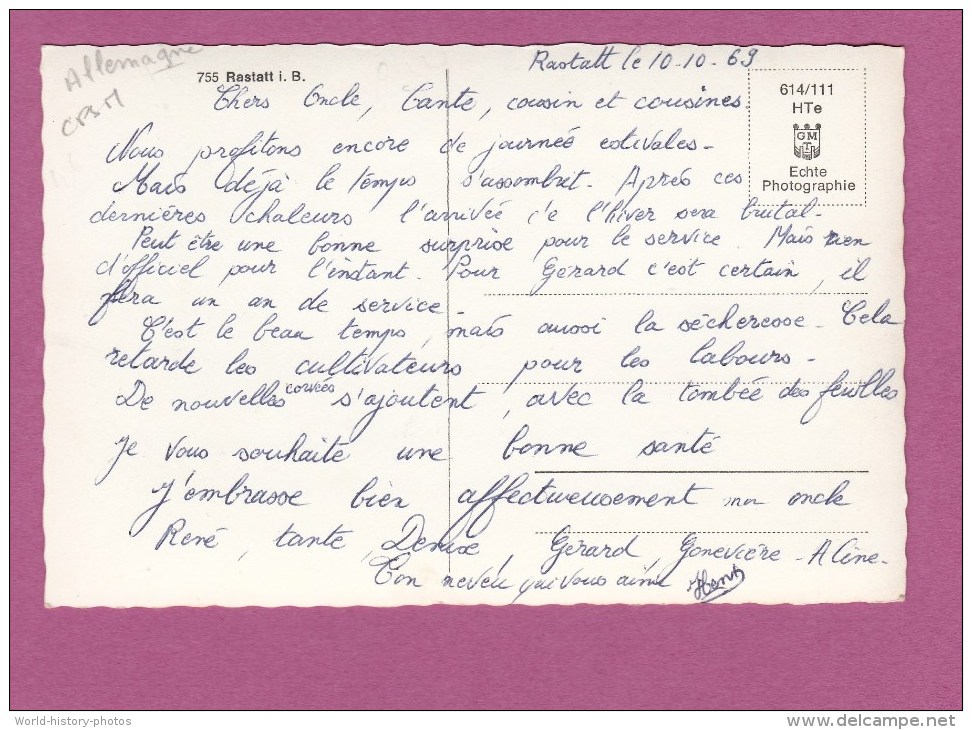 Allemagne
cpsm
755 Rastatt i. B.
Rastatt le 10-10-69
614/111
HTe
GM
Echte
Photographie
Chers Oncle, Tante, cousin et cousines.
Nous profitons encore de journée estivales -
Mais déjà le temps s'assombrit. Après ces
dernières chaleurs l'arrivée de l'hiver sera brutal -
Peut être une bonne surprise pour le service. Mais rien
d'officiel pour l'instant. Pour Gérard c'est certain, il
fera un an de service -
C'est le beau temps, mais aussi la sécheresse - Cela
retarde les cultivateurs pour les labours -
De nouvelles corvées s'ajoutent, avec la tombée des feuilles
Je vous souhaite une bonne santé
J'embrasse bien affectueusement mon oncle
René, tante Denise, Gérard, Geneviève - Aline -
Ton neveu qui vous aime Henri
World-history-photos
delcampe.net